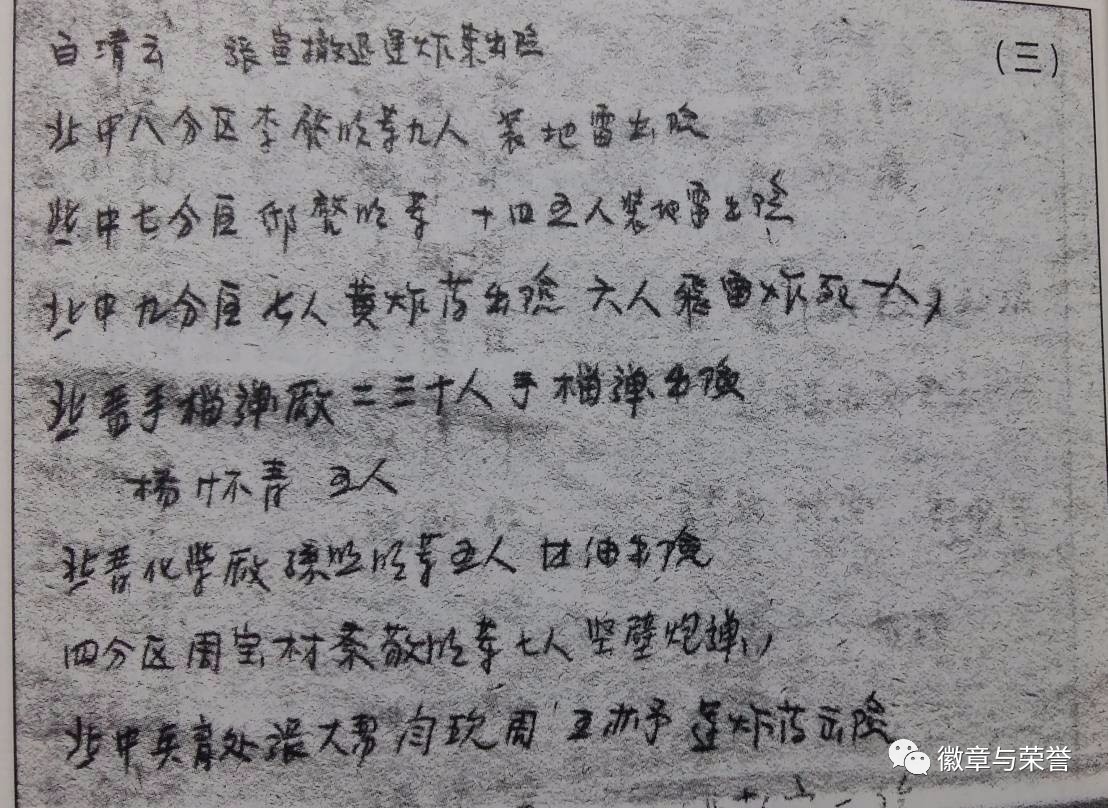 白清云 张宣撤退运炸药出险
(三)
北中八分区李 等九人 装地雷出险
北中七分区邸 等 十四五人装地雷出险
北中九分区七人黄炸药出险 六人 雷炸死一人,
北晋手榴弹厰二三十人手榴弹出险
杨怀青 五人
北晋化学厰 等五人 甘油出险
四分区周宝材 敬 等七人坚壁炮弹,
北中 处张大男 玖周 王亦予 运炸药云险
徽章与荣誉